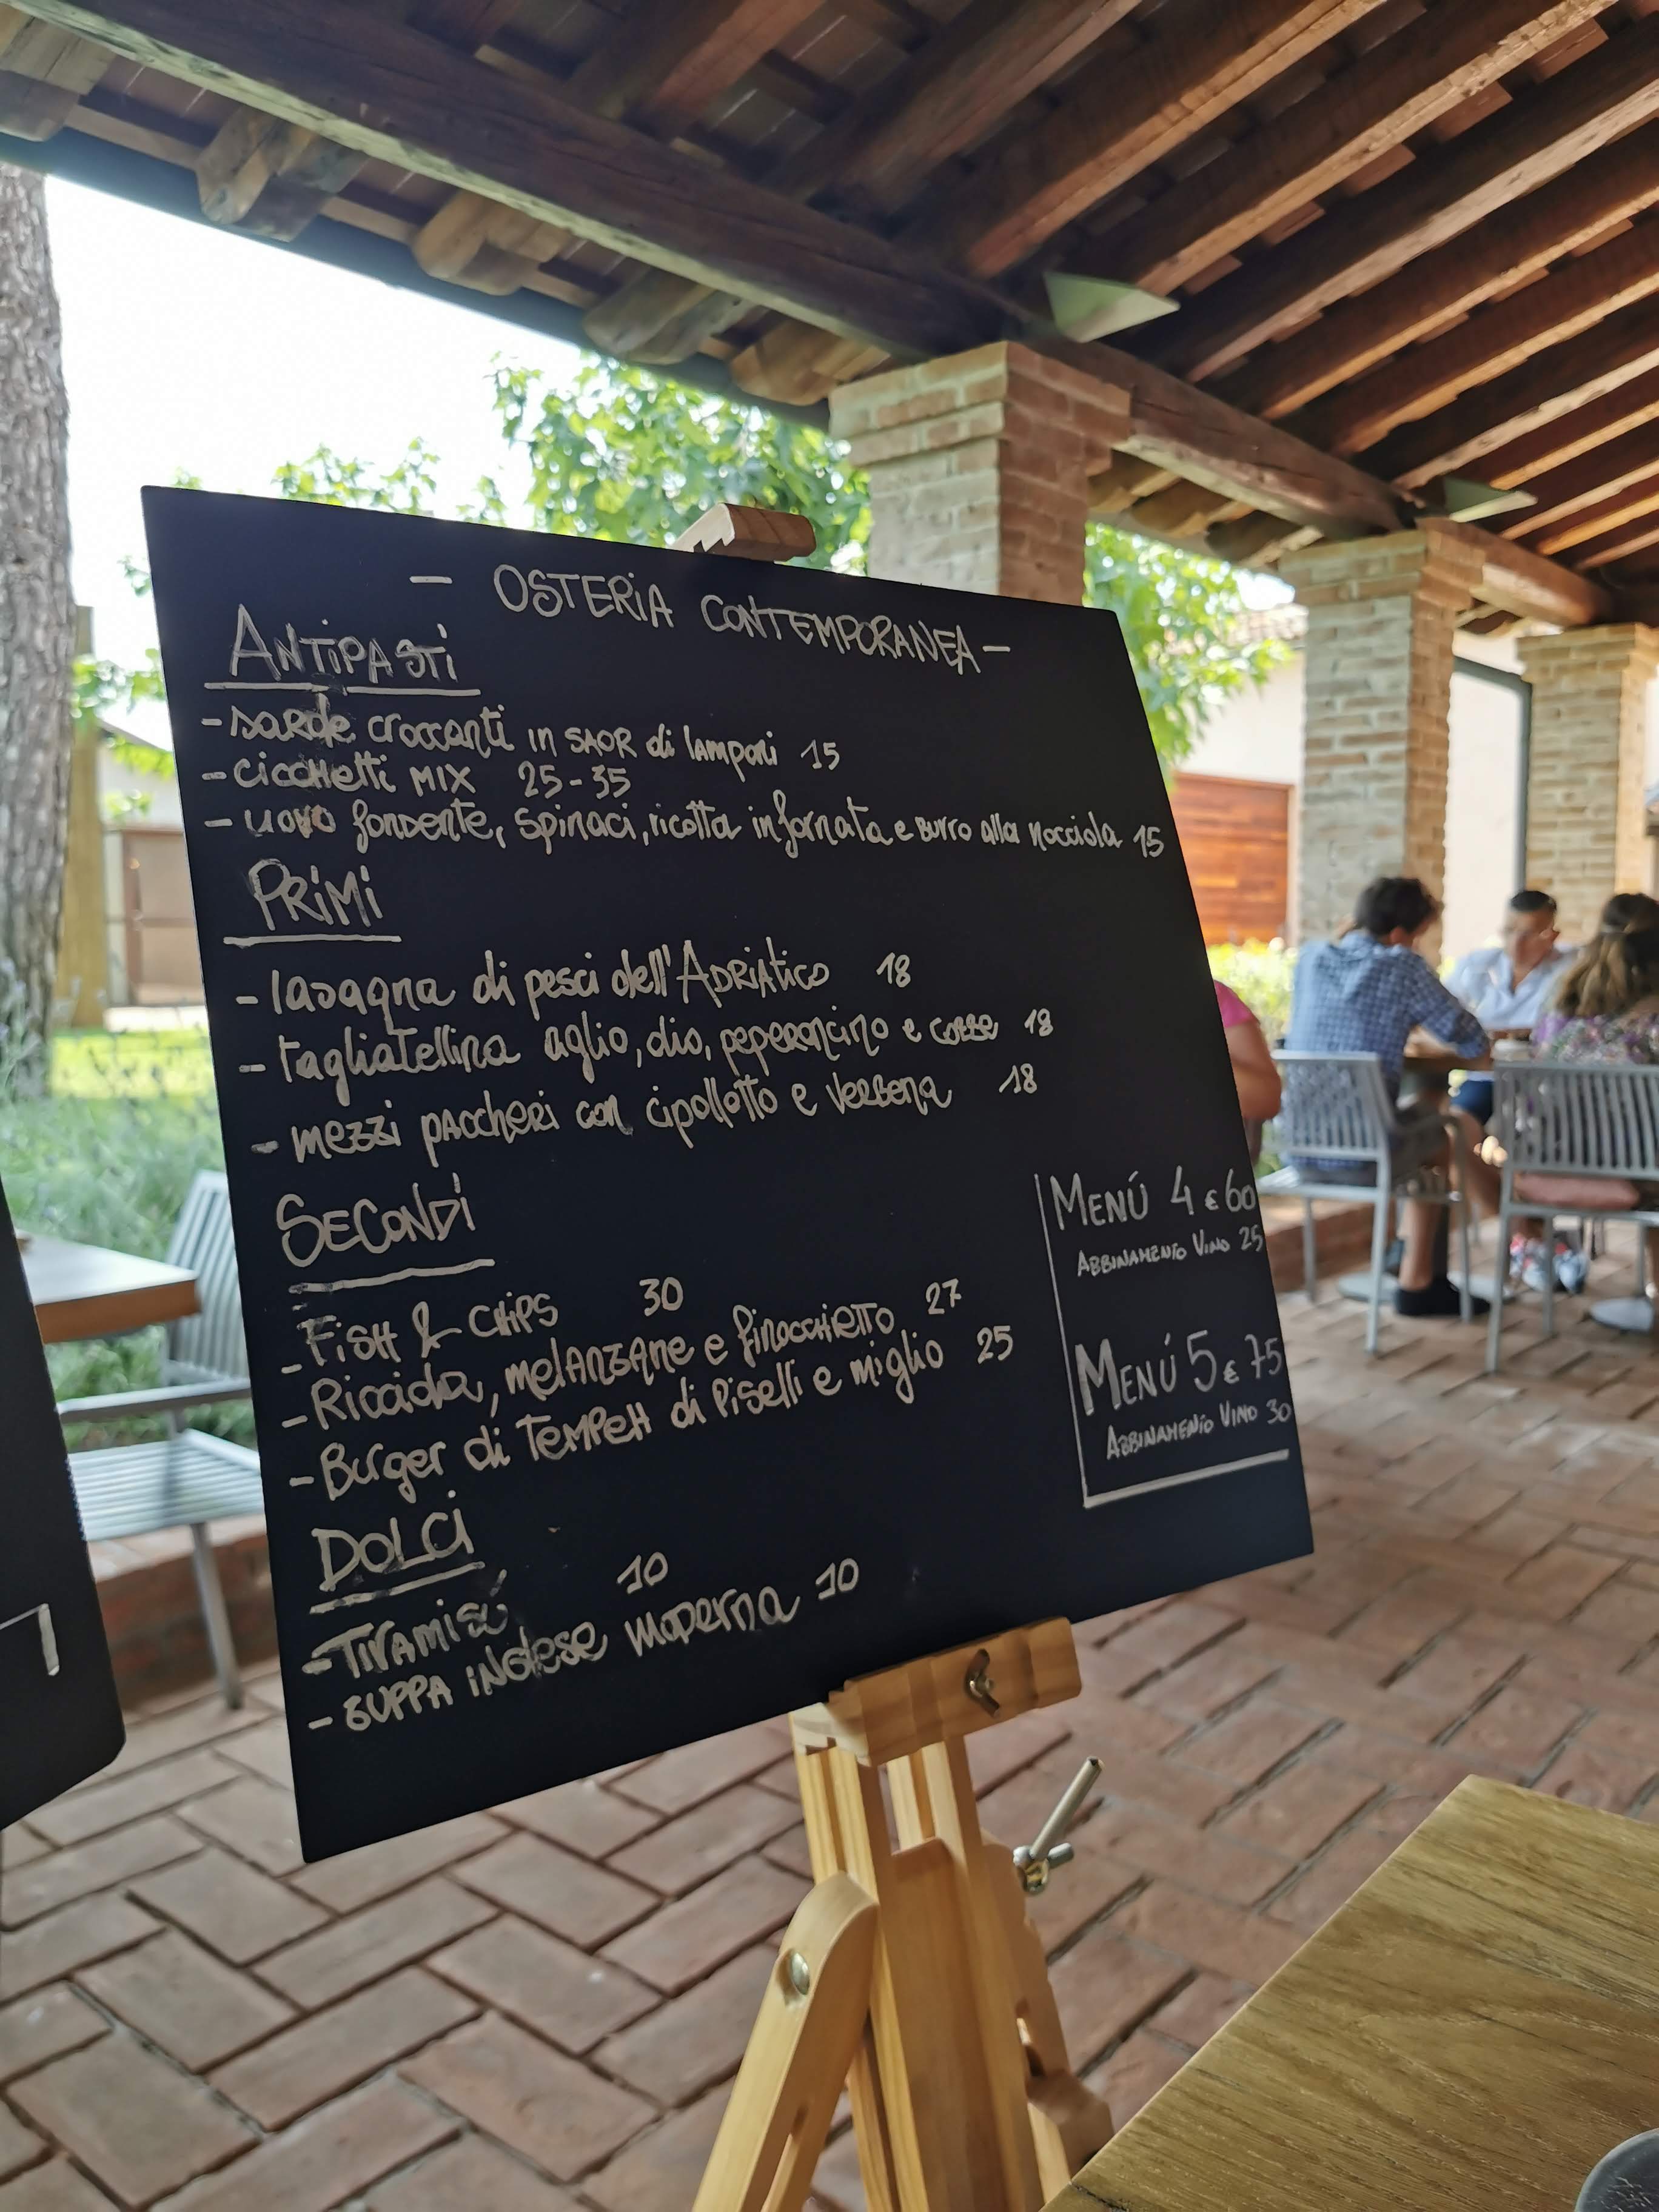 - OSTERIA CONTEMPORANEA -
ANTIPASTI
- sarde croccanti in SAOR di lamponi 15
- cicchetti MIX 25-35
- uovo fondente, spinaci, ricotta infornata e burro alla nocciola 15
PRIMI
- lasagna di pesci dell'ADRIATICO 18
- tagliatellina aglio, olio, peperoncino e cozze 18
- mezzi paccheri con cipollotto e verbena 18
SECONDI
- FISH & CHIPS 30
- Ricciola, melanzane e finocchietto 27
- Burger di TEMPEH di Piselli e miglio 25
DOLCI
- TIRAMISÙ 10
- ZUPPA inglese moderna 10
MENÚ 4 € 60
ABBINAMENTO VINO 25
MENÚ 5 € 75
ABBINAMENTO VINO 30